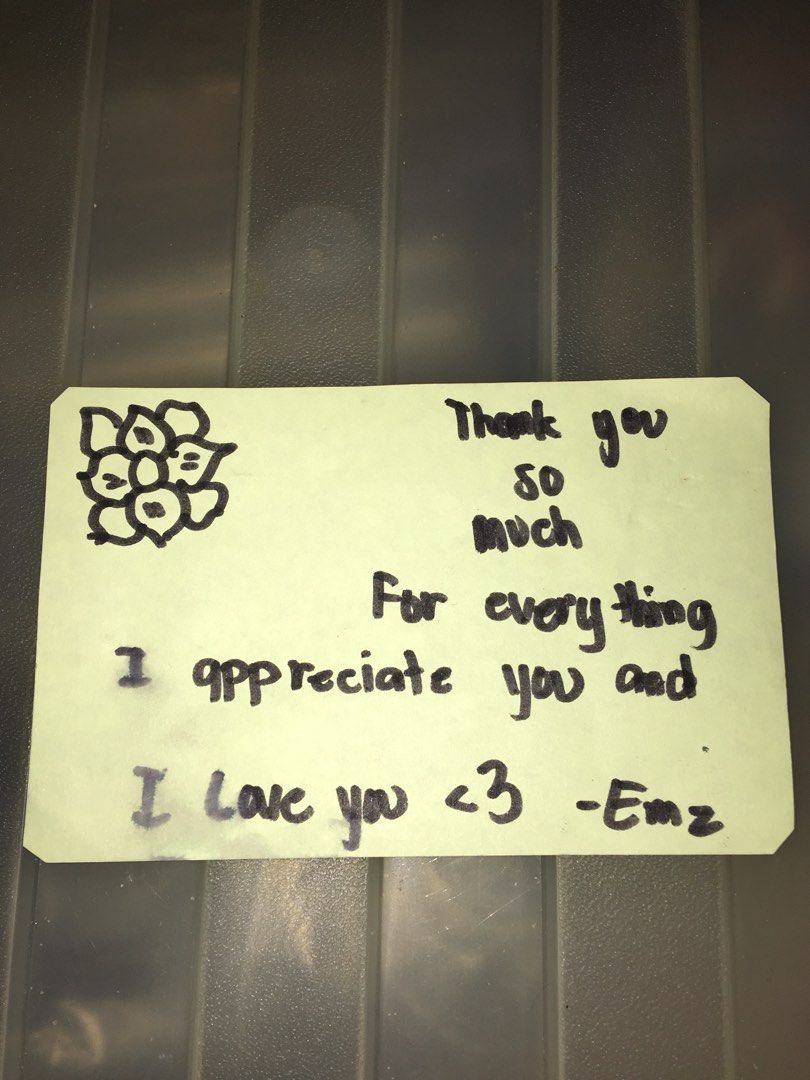 Thank you
so
much
For everything
I appreciate you and
I Love you <3 -Emz